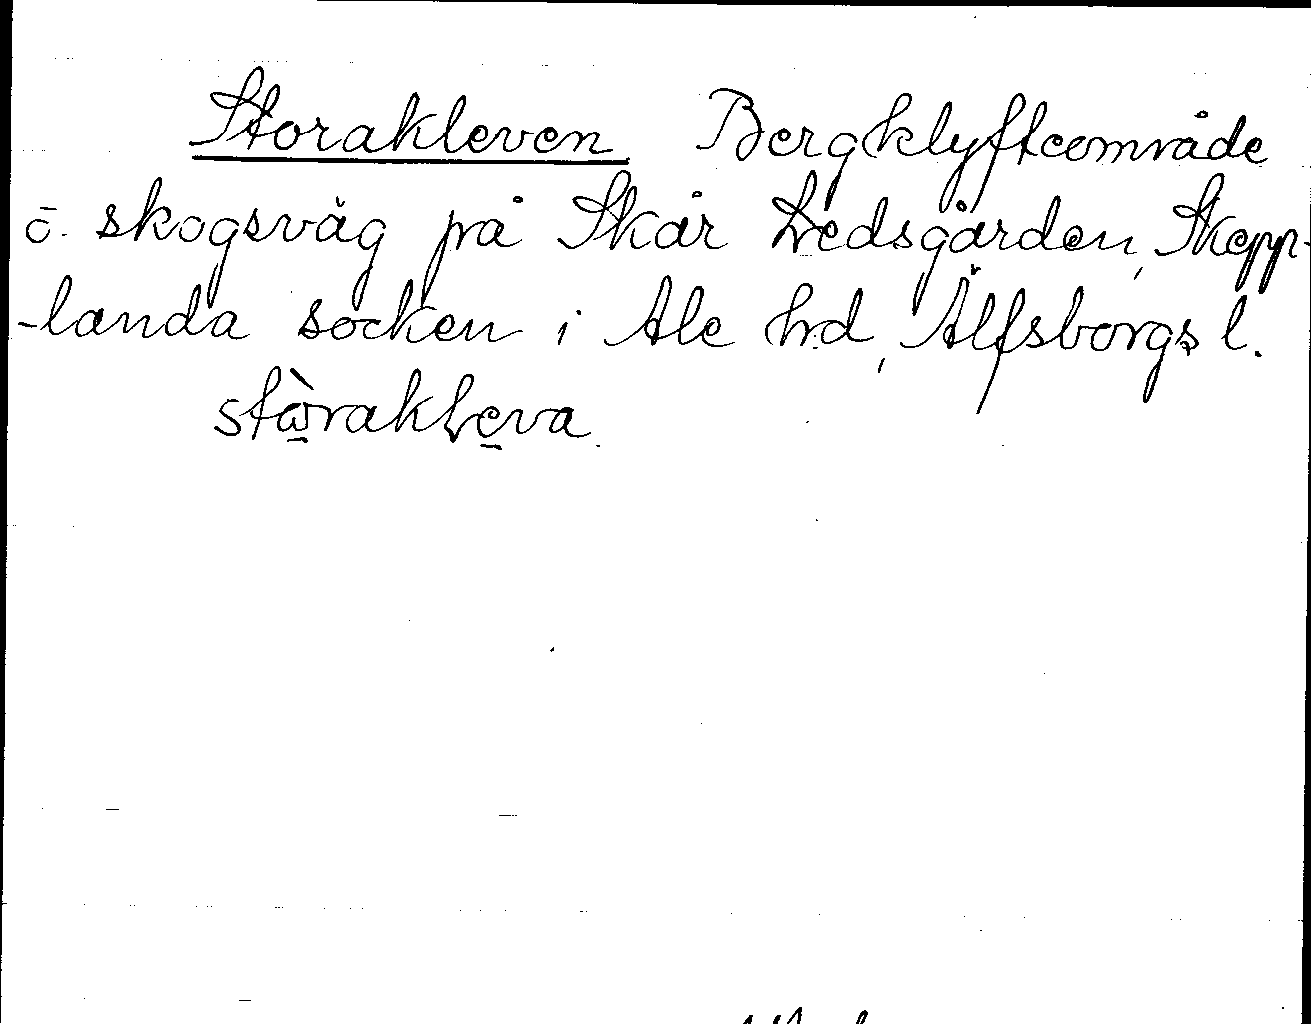 Storakleven Bergklyfteområde
o. skogsväg på Skår Ledsgården, Skepp-
-landa socken i Ale hd, Älfsborgs l.
stòrakleva